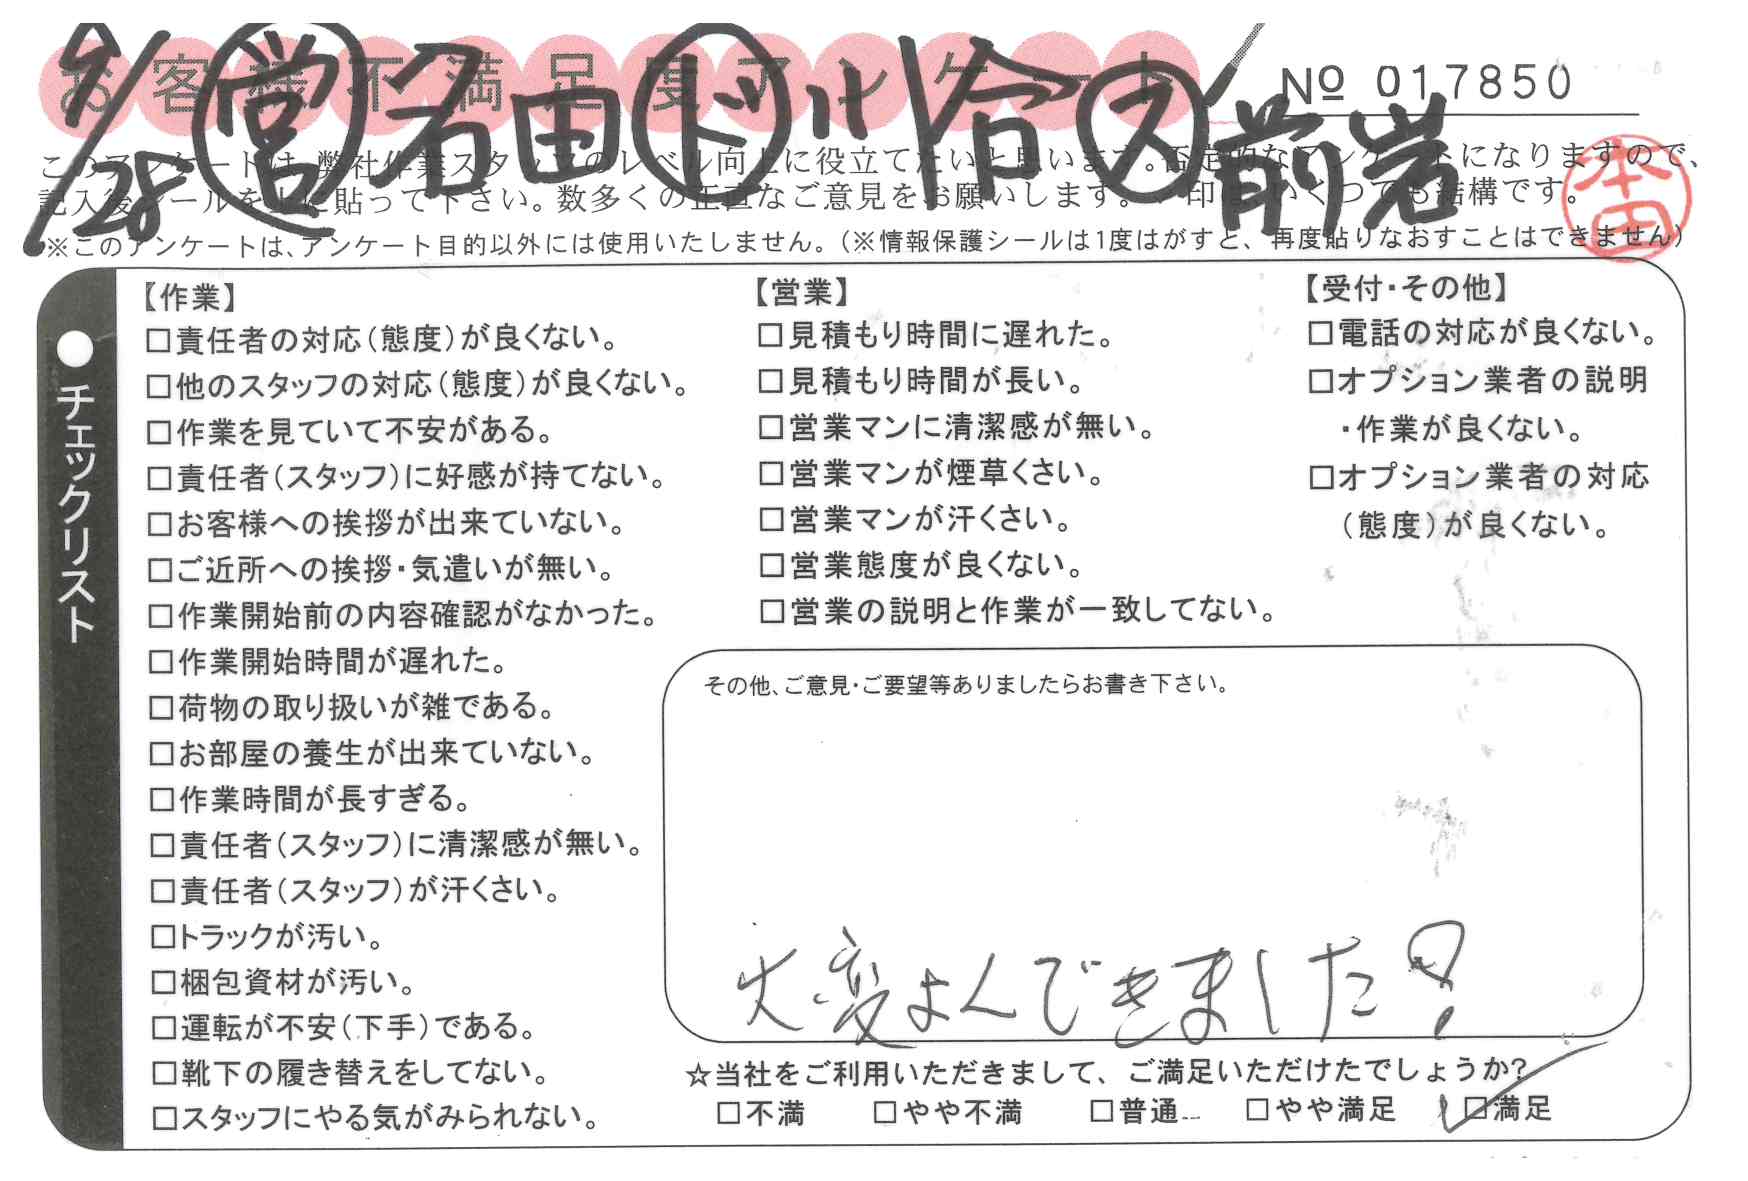 お客様不満足度アンケート
9/28 営 名田 ド 小谷 ス 前岩
No 017850
このアンケートは、弊社作業スタッフのレベル向上に役立てたいと思います。否定的なアンケートになりますので、
記入後シールを上に貼って下さい。数多くの正直なご意見をお願いします。✓印は、いくつでも結構です。
本田
※このアンケートは、アンケート目的以外には使用いたしません。(※情報保護シールは1度はがすと、再度貼りなおすことはできません)
●チェックリスト
【作業】
□責任者の対応(態度)が良くない。
□他のスタッフの対応(態度)が良くない。
□作業を見ていて不安がある。
□責任者(スタッフ)に好感が持てない。
□お客様への挨拶が出来ていない。
□ご近所への挨拶・気遣いが無い。
□作業開始前の内容確認がなかった。
□作業開始時間が遅れた。
□荷物の取り扱いが雑である。
□お部屋の養生が出来ていない。
□作業時間が長すぎる。
□責任者(スタッフ)に清潔感が無い。
□責任者(スタッフ)が汗くさい。
□トラックが汚い。
□梱包資材が汚い。
□運転が不安(下手)である。
□靴下の履き替えをしてない。
□スタッフにやる気がみられない。
【営業】
□見積もり時間に遅れた。
□見積もり時間が長い。
□営業マンに清潔感が無い。
□営業マンが煙草くさい。
□営業マンが汗くさい。
□営業態度が良くない。
□営業の説明と作業が一致してない。
【受付・その他】
□電話の対応が良くない。
□オプション業者の説明
・作業が良くない。
□オプション業者の対応
(態度)が良くない。
その他、ご意見・ご要望等ありましたらお書き下さい。
大変よくできました!
☆当社をご利用いただきまして、ご満足いただけたでしょうか?
□不満 □やや不満 □普通 □やや満足 ☑満足